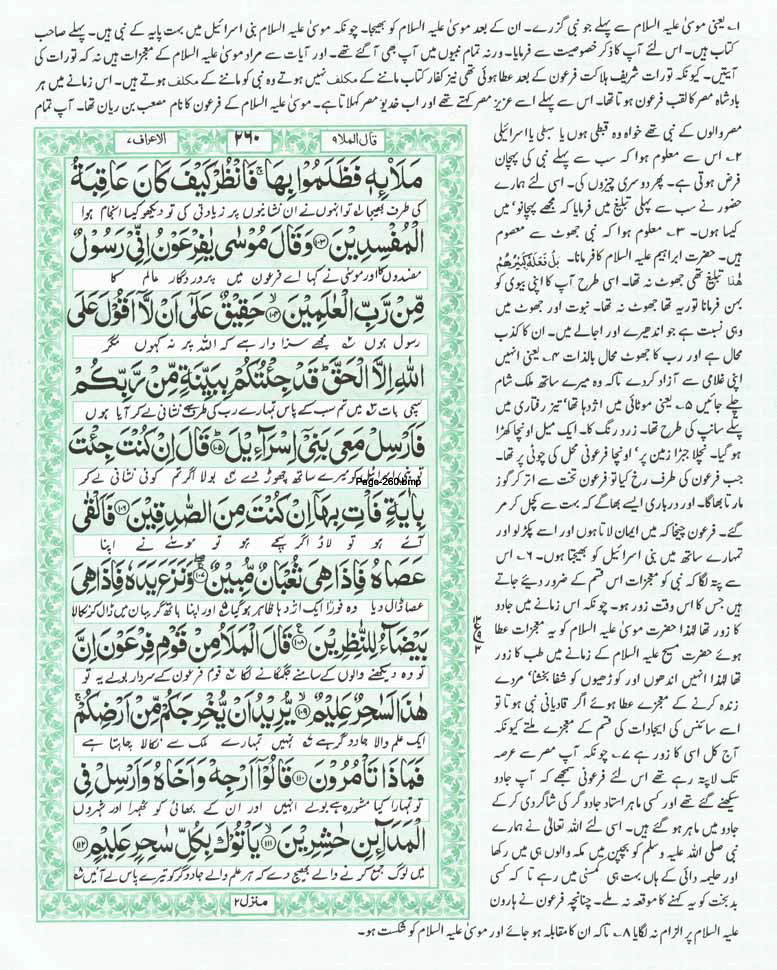 ۱؎ یعنی موسیٰ علیہ السلام سے پہلے جو نبی گزرے۔ ان کے بعد موسیٰ علیہ السلام کو بھیجا۔ چونکہ موسیٰ علیہ السلام بنی اسرائیل میں بہت پایہ کے نبی ہیں۔ پہلے صاحب
کتاب ہیں۔ اس لئے آپ کا ذکر خصوصیت سے فرمایا۔ ورنہ تمام نبیوں میں آپ بھی آ گئے تھے۔ اور آیات سے مراد موسیٰ علیہ السلام کے معجزات ہیں نہ کہ تورات کی
آیتیں۔ کیونکہ تورات شریف ہلاکت فرعون کے بعد عطا ہوئی تھی نیز کفار کتاب ماننے کے مکلف نہیں ہوتے وہ نبی کو ماننے کے مکلف ہوتے ہیں۔ اس زمانے میں ہر
بادشاہ مصر کا لقب فرعون ہوتا تھا۔ اس سے پہلے اسے عزیز مصر کہتے تھے اور اب خدیو مصر کہلاتا ہے۔ موسیٰ علیہ السلام کے فرعون کا نام مصعب بن ریان تھا۔ آپ تمام
مصر والوں کے نبی تھے خواہ وہ قبطی ہوں یا سبطی یا اسرائیلی
۲؎ اس سے معلوم ہوا کہ سب سے پہلے نبی کی پہچان
فرض ہوتی ہے۔ پھر دوسری چیزوں کی۔ اسی لئے ہمارے
حضور نے سب سے پہلی تبلیغ میں فرمایا کہ مجھے پہچانو، میں
کیسا ہوں۔ ۳؎ معلوم ہوا کہ نبی جھوٹ سے معصوم
ہیں۔ حضرت ابراہیم علیہ السلام کا فرمانا۔ بَلْ فَعَلَهٗ كَبِيْرُهُمْ
هٰذَا تبلیغ تھی جھوٹ نہ تھا۔ اسی طرح آپ کا اپنی بیوی کو
بہن فرمانا توریہ تھا جھوٹ نہ تھا۔ نبوت اور جھوٹ میں
وہی نسبت ہے جو اندھیرے اور اجالے میں۔ ان کا کذب
محال ہے اور رب کا جھوٹ محال بالذات ۴؎ یعنی انہیں
اپنی غلامی سے آزاد کردے تاکہ وہ میرے ساتھ ملک شام
چلے جائیں ۵؎ یعنی موٹائی میں اژدہا تھا، تیز رفتاری میں
پتلے سانپ کی طرح تھا۔ زرد رنگ کا۔ ایک میل اونچا کھڑا
ہو گیا۔ نچلا جبڑا زمین پر، اونچلا فرعونی محل کی چوٹی پر تھا۔
جب فرعون کی طرف رخ کیا تو فرعون تخت سے اتر کر گوز
مارتا بھاگا۔ اور درباری ایسے بھاگے کہ بہت سے کچل کر مر
گئے۔ فرعون چیخا کہ میں ایمان لاتا ہوں اور اسے پکڑ لو اور
تمہارے ساتھ میں بنی اسرائیل کو بھیجتا ہوں۔ ۶؎ اس
سے پتہ لگا کہ نبی کو معجزات اس قسم کے ضرور دیئے جاتے
ہیں جس کا اس وقت زور ہو۔ چونکہ اس زمانے میں جادو
کا زور تھا لہٰذا حضرت موسیٰ علیہ السلام کو یہ معجزات عطا
ہوئے حضرت مسیح علیہ السلام کے زمانے میں طب کا زور
تھا لہٰذا انہیں اندھوں اور کوڑھیوں کو شفا بخشنا، مردے
زندہ کرنے کے معجزے عطا ہوئے اگر قادیانی نبی ہوتا تو
اسے سائنس کی ایجادات کی قسم کے معجزے ملتے کیونکہ
آج کل اسی کا زور ہے ۷؎ چونکہ آپ مصر سے عرصہ
تک لاپتہ رہے تھے اس لئے فرعونی سمجھے کہ آپ جادو
سیکھنے گئے تھے اور کسی ماہر استاد جادوگر کی شاگردی کر کے
جادو میں ماہر ہو گئے ہیں۔ اسی لئے اللہ تعالیٰ نے ہمارے
نبی صلی اللہ علیہ وسلم کو بچپن میں مکہ والوں ہی میں رکھا
اور حلیمہ دائی کے ہاں بہت ہی کمسنی میں رہے تاکہ کسی
بدبخت کو یہ کہنے کا موقعہ نہ ملے۔ چنانچہ فرعون نے ہارون
علیہ السلام پر الزام نہ لگایا ۸؎ تاکہ ان کا مقابلہ ہو جائے اور موسیٰ علیہ السلام کو شکست ہو۔
قال الملا ۹
۲۶۰
الاعراف ۷
مَلَا۟ئِهٖ فَظَلَمُوْا بِهَا ۚ فَانْظُرْ كَيْفَ كَانَ عَاقِبَةُ
کی طرف بھیجا ۱؎ تو انہوں نے ان نشانیوں پر زیادتی کی تو دیکھو کیسا انجام ہوا
الْمُفْسِدِيْنَ ۝۱۰۳ وَقَالَ مُوْسٰى يٰفِرْعَوْنُ اِنِّيْ رَسُوْلٌ
مفسدوں کا اور موسیٰ نے کہا اے فرعون میں پروردگار عالم کا
مِّنْ رَّبِّ الْعٰلَمِيْنَ ۝۱۰۴ حَقِيْقٌ عَلٰٓى اَنْ لَّاۤ اَقُوْلَ عَلَى
رسول ہوں ۲؎ مجھے سزاوار ہے کہ اللہ پر نہ کہوں مگر
اللّٰهِ اِلَّا الْحَقَّ ؕ قَدْ جِئْتُكُمْ بِبَيِّنَةٍ مِّنْ رَّبِّكُمْ
سچی بات ۳؎ میں تم سب کے پاس تمہارے رب کی طرف سے نشانی لے کر آیا ہوں
فَاَرْسِلْ مَعِيَ بَنِيْۤ اِسْرَآءِيْلَ ۝۱۰۵ قَالَ اِنْ كُنْتَ جِئْتَ
تو بنی اسرائیل کو میرے ساتھ چھوڑ دے ۴؎ بولا اگر تم کوئی نشانی لے کر
Page-260.bmp
بِاٰيَةٍ فَاْتِ بِهَاۤ اِنْ كُنْتَ مِنَ الصّٰدِقِيْنَ ۝۱۰۶ فَاَلْقٰى
آئے ہو تو لاؤ اگر سچے ہو تو موسیٰ نے اپنا
عَصَاهُ فَاِذَا هِيَ ثُعْبَانٌ مُّبِيْنٌ ۝۱۰۷ وَّنَزَعَ يَدَهٗ فَاِذَا هِيَ
عصا ڈال دیا وہ فوراً ایک اژدہا ظاہر ہو گیا ۵؎ اور اپنا ہاتھ گریبان میں ڈال کر نکالا
بَيْضَآءُ لِلنّٰظِرِيْنَ ۝۱۰۸ قَالَ الْمَلَاُ مِنْ قَوْمِ فِرْعَوْنَ اِنَّ
تو وہ دیکھنے والوں کے سامنے جگمگانے لگا ۶؎ قوم فرعون کے سردار بولے یہ تو
هٰذَا لَسٰحِرٌ عَلِيْمٌ ۝۱۰۹ يُّرِيْدُ اَنْ يُّخْرِجَكُمْ مِّنْ اَرْضِكُمْ ۚ
ایک علم والا جادوگر ہے ۷؎ تمہیں تمہارے ملک سے نکالا چاہتا ہے
فَمَاذَا تَاْمُرُوْنَ ۝۱۱۰ قَالُوْۤا اَرْجِهْ وَاَخَاهُ وَاَرْسِلْ فِي
تو تمہارا کیا مشورہ ہے بولے انہیں اور ان کے بھائی کو ٹھہرا اور شہروں
الْمَدَآئِنِ حٰشِرِيْنَ ۝۱۱۱ يَاْتُوْكَ بِكُلِّ سٰحِرٍ عَلِيْمٍ ۝۱۱۲
میں لوگ جمع کرنے والے بھیج دے کہ ہر علم والے جادوگر کو تیرے پاس لے آئیں ۸؎
منزل ۲